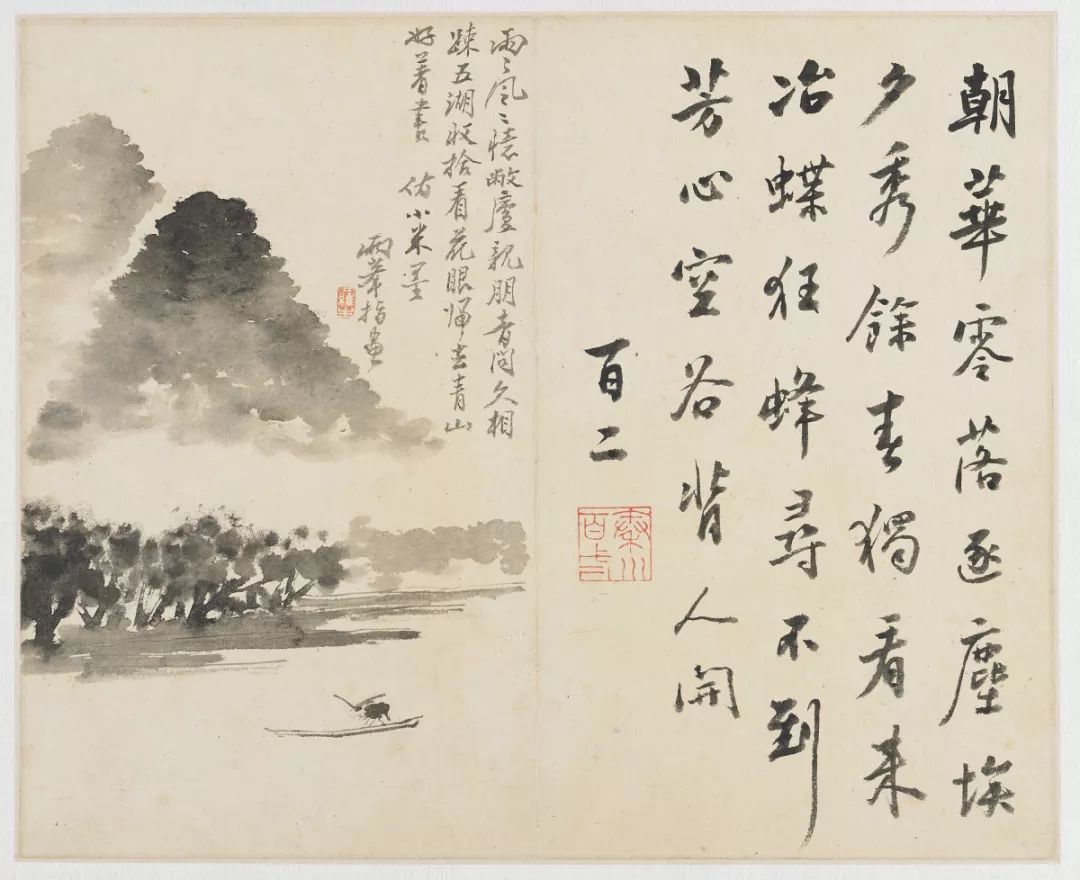 朝華零落逐塵埃
夕秀餘春獨看来
冶蝶狂蜂尋不到
芳心空谷背人開
百二
秦川
百二
雨〻風〻憶敝廬親朋音問久相
踈五湖收拾看花眼歸去青山
好著書 仿小米墨
兩峯指畫